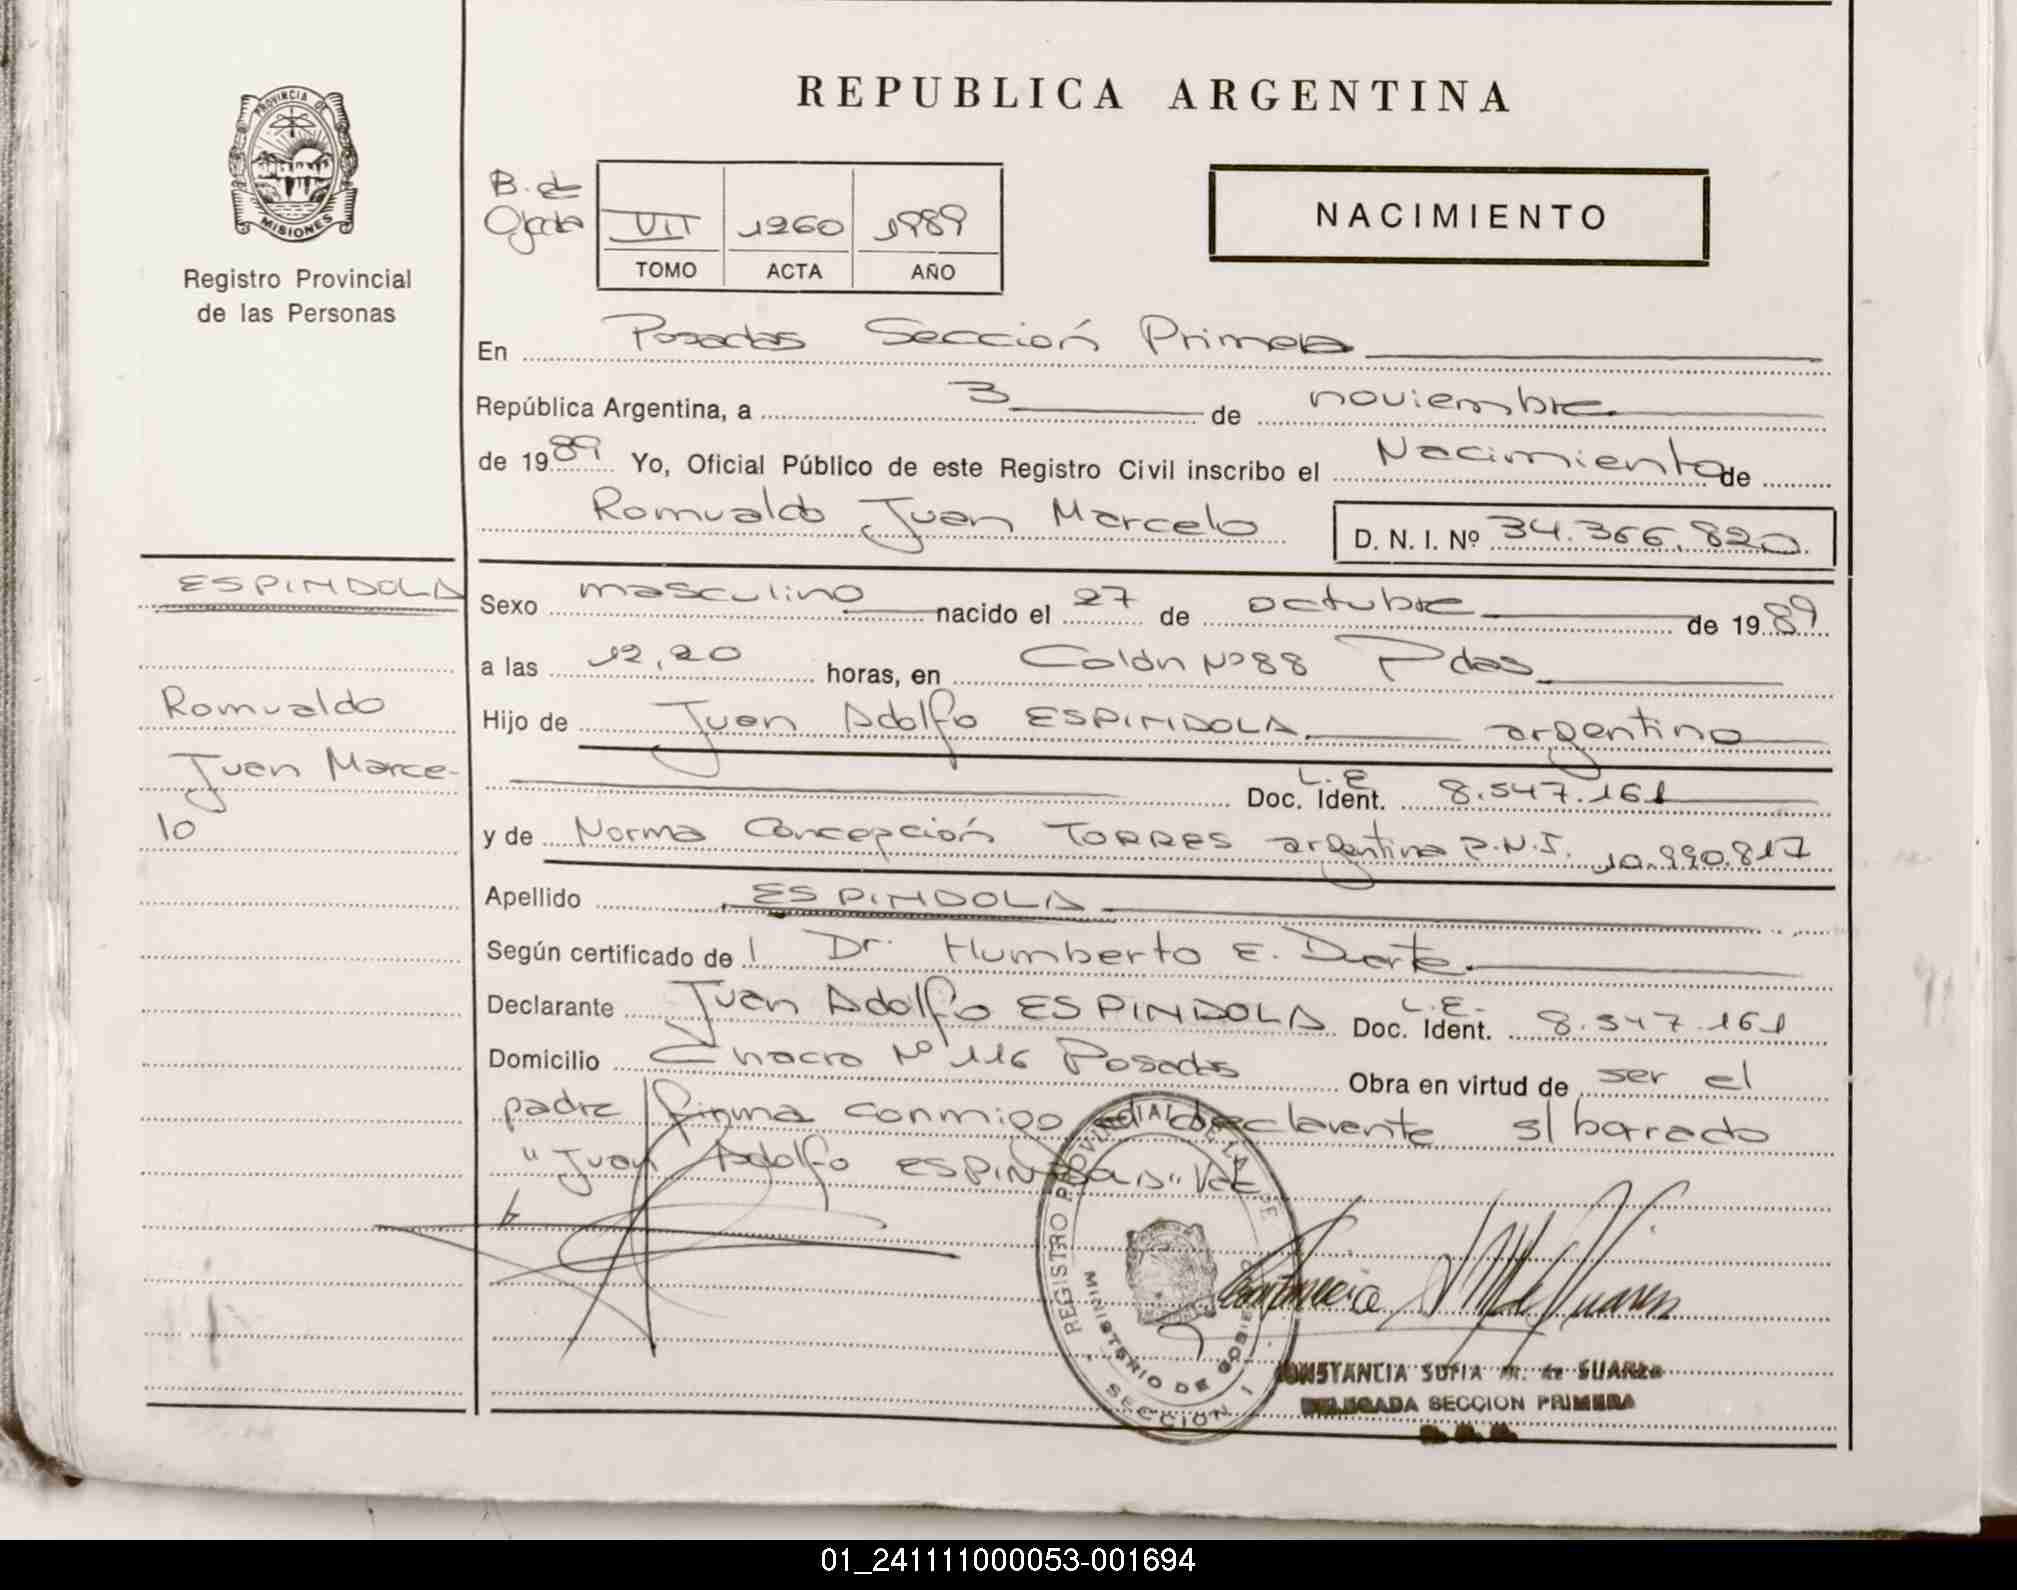 REPUBLICA ARGENTINA
PROVINCIA DE
MISIONES
Registro Provincial
de las Personas
B. de
Ojeda
VII 1260 1989
TOMO ACTA AÑO
NACIMIENTO
En Posadas Sección Primera
República Argentina, a 3 de noviembre
de 1989 Yo, Oficial Público de este Registro Civil inscribo el Nacimiento de
Romualdo Juan Marcelo D. N. I. Nº 34.366.820
ESPINDOLA
Romualdo
Juan Marce-
lo
Sexo masculino nacido el 27 de octubre de 1989
a las 12,20 horas, en Colón Nº 88 Pdas
Hijo de Juan Adolfo ESPINDOLA argentino
Doc. Ident. L.E 8.547.161
y de Norma Concepción TORRES argentina D.N.I. 10.990.817
Apellido ESPINDOLA
Según certificado de Dr. Humberto E. Duarte
Declarante Juan Adolfo ESPINDOLA Doc. Ident. L.E. 8.547.161
Domicilio Chacra Nº 116 Posadas Obra en virtud de ser el
padre firma conmigo el declarante s/ borrado
"Juan Adolfo ESPINDOLA" Vale
REGISTRO PROVINCIAL DE LAS PE
MINISTERIO DE GOBIE
SECCION I
CONSTANCIA SOFIA M. de SUAREZ
DELEGADA SECCION PRIMERA
01_241111000053-001694